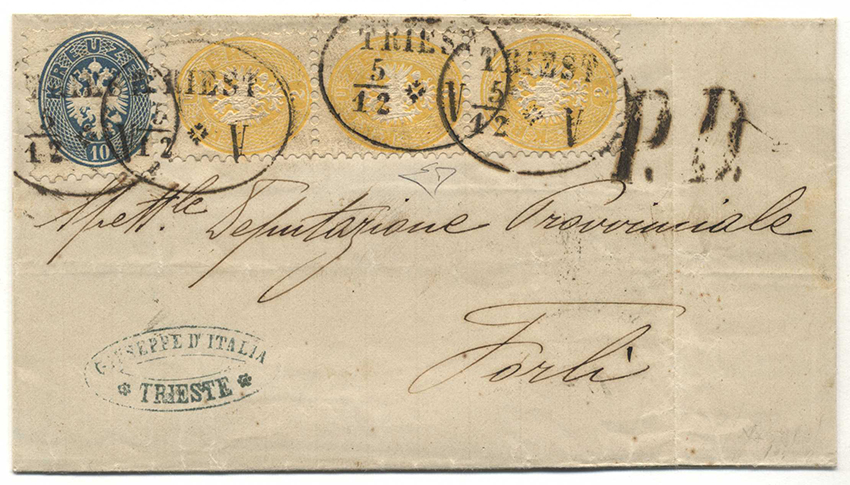 KREUZER
10
TRIEST
5
12
V
TRIEST
5
12
V
TRIEST
5
12
V
2
2
P.D.
Spett.le Deputazione Provinciale
Forlì
GIUSEPPE D'ITALIA
TRIESTE